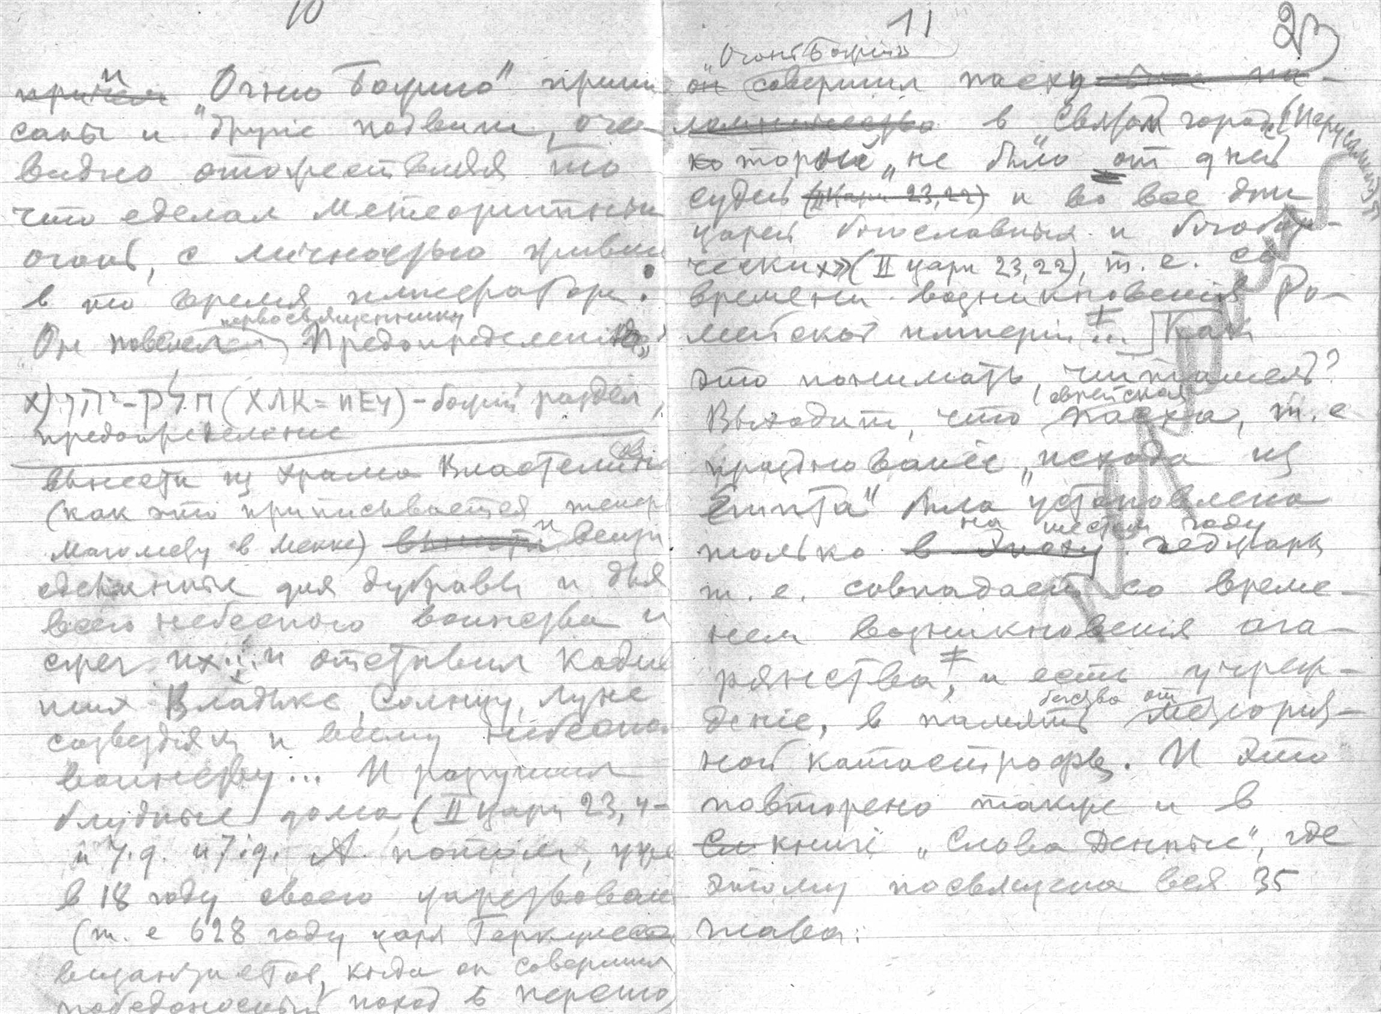 10
„Огню Божию" припи
саны и другіе подвиги, оче-
видно отожествляя то
что сделал метеоритный
огонь, с личностью жившаго
в то время императора.
первосвященнику
Он повелел Предопределенію
х) חלק-יהו (ХЛК=ИЕУ) - божій раздел,
предопределение
вынести из храма Властелинов
(как это приписывается теперь
Магомету в Мекке) вещи
сделанные для дубравы и для
всего небеснаго воинства и
сжег их... и отставил кадив
ших Владыке, Солнцу, Луне
созвездіям и всему небесном
воинству... И разрушил
блудные дома (II Царн 23, 4-
и 7. д. А потом, уже
в 18 году своего царствован
(т. е 628 году царя Геркулеса
византійства, когда он совершил
победоносный поход в Персию
11
23
„Огонь Божій"
он совершил пасху
в „Святом городе (Иерусалиме)
которой „не было от дней
судей (II Царн 23,22) и во все дни
царей богославных и богобор-
ческих» (II царн 23,22), т. е. со
времени возникновения Ро-
мейской имперіи ≠ ...] Как
это понимать, читатель?
еврейская
Выходит, что пасха, т. е
празднованіе „исхода из
Египта" была установлена
на шестом году
только в эпоху Геджры
т. е. совпадает со време-
нем возникновенія ага-
рянства,≠ и есть учреж-
бегства от
деніе, в память метеорит-
ной катастрофы. И это
повторено также и в
книге „Слова Денные", где
этому посвящена вся 35
глава.